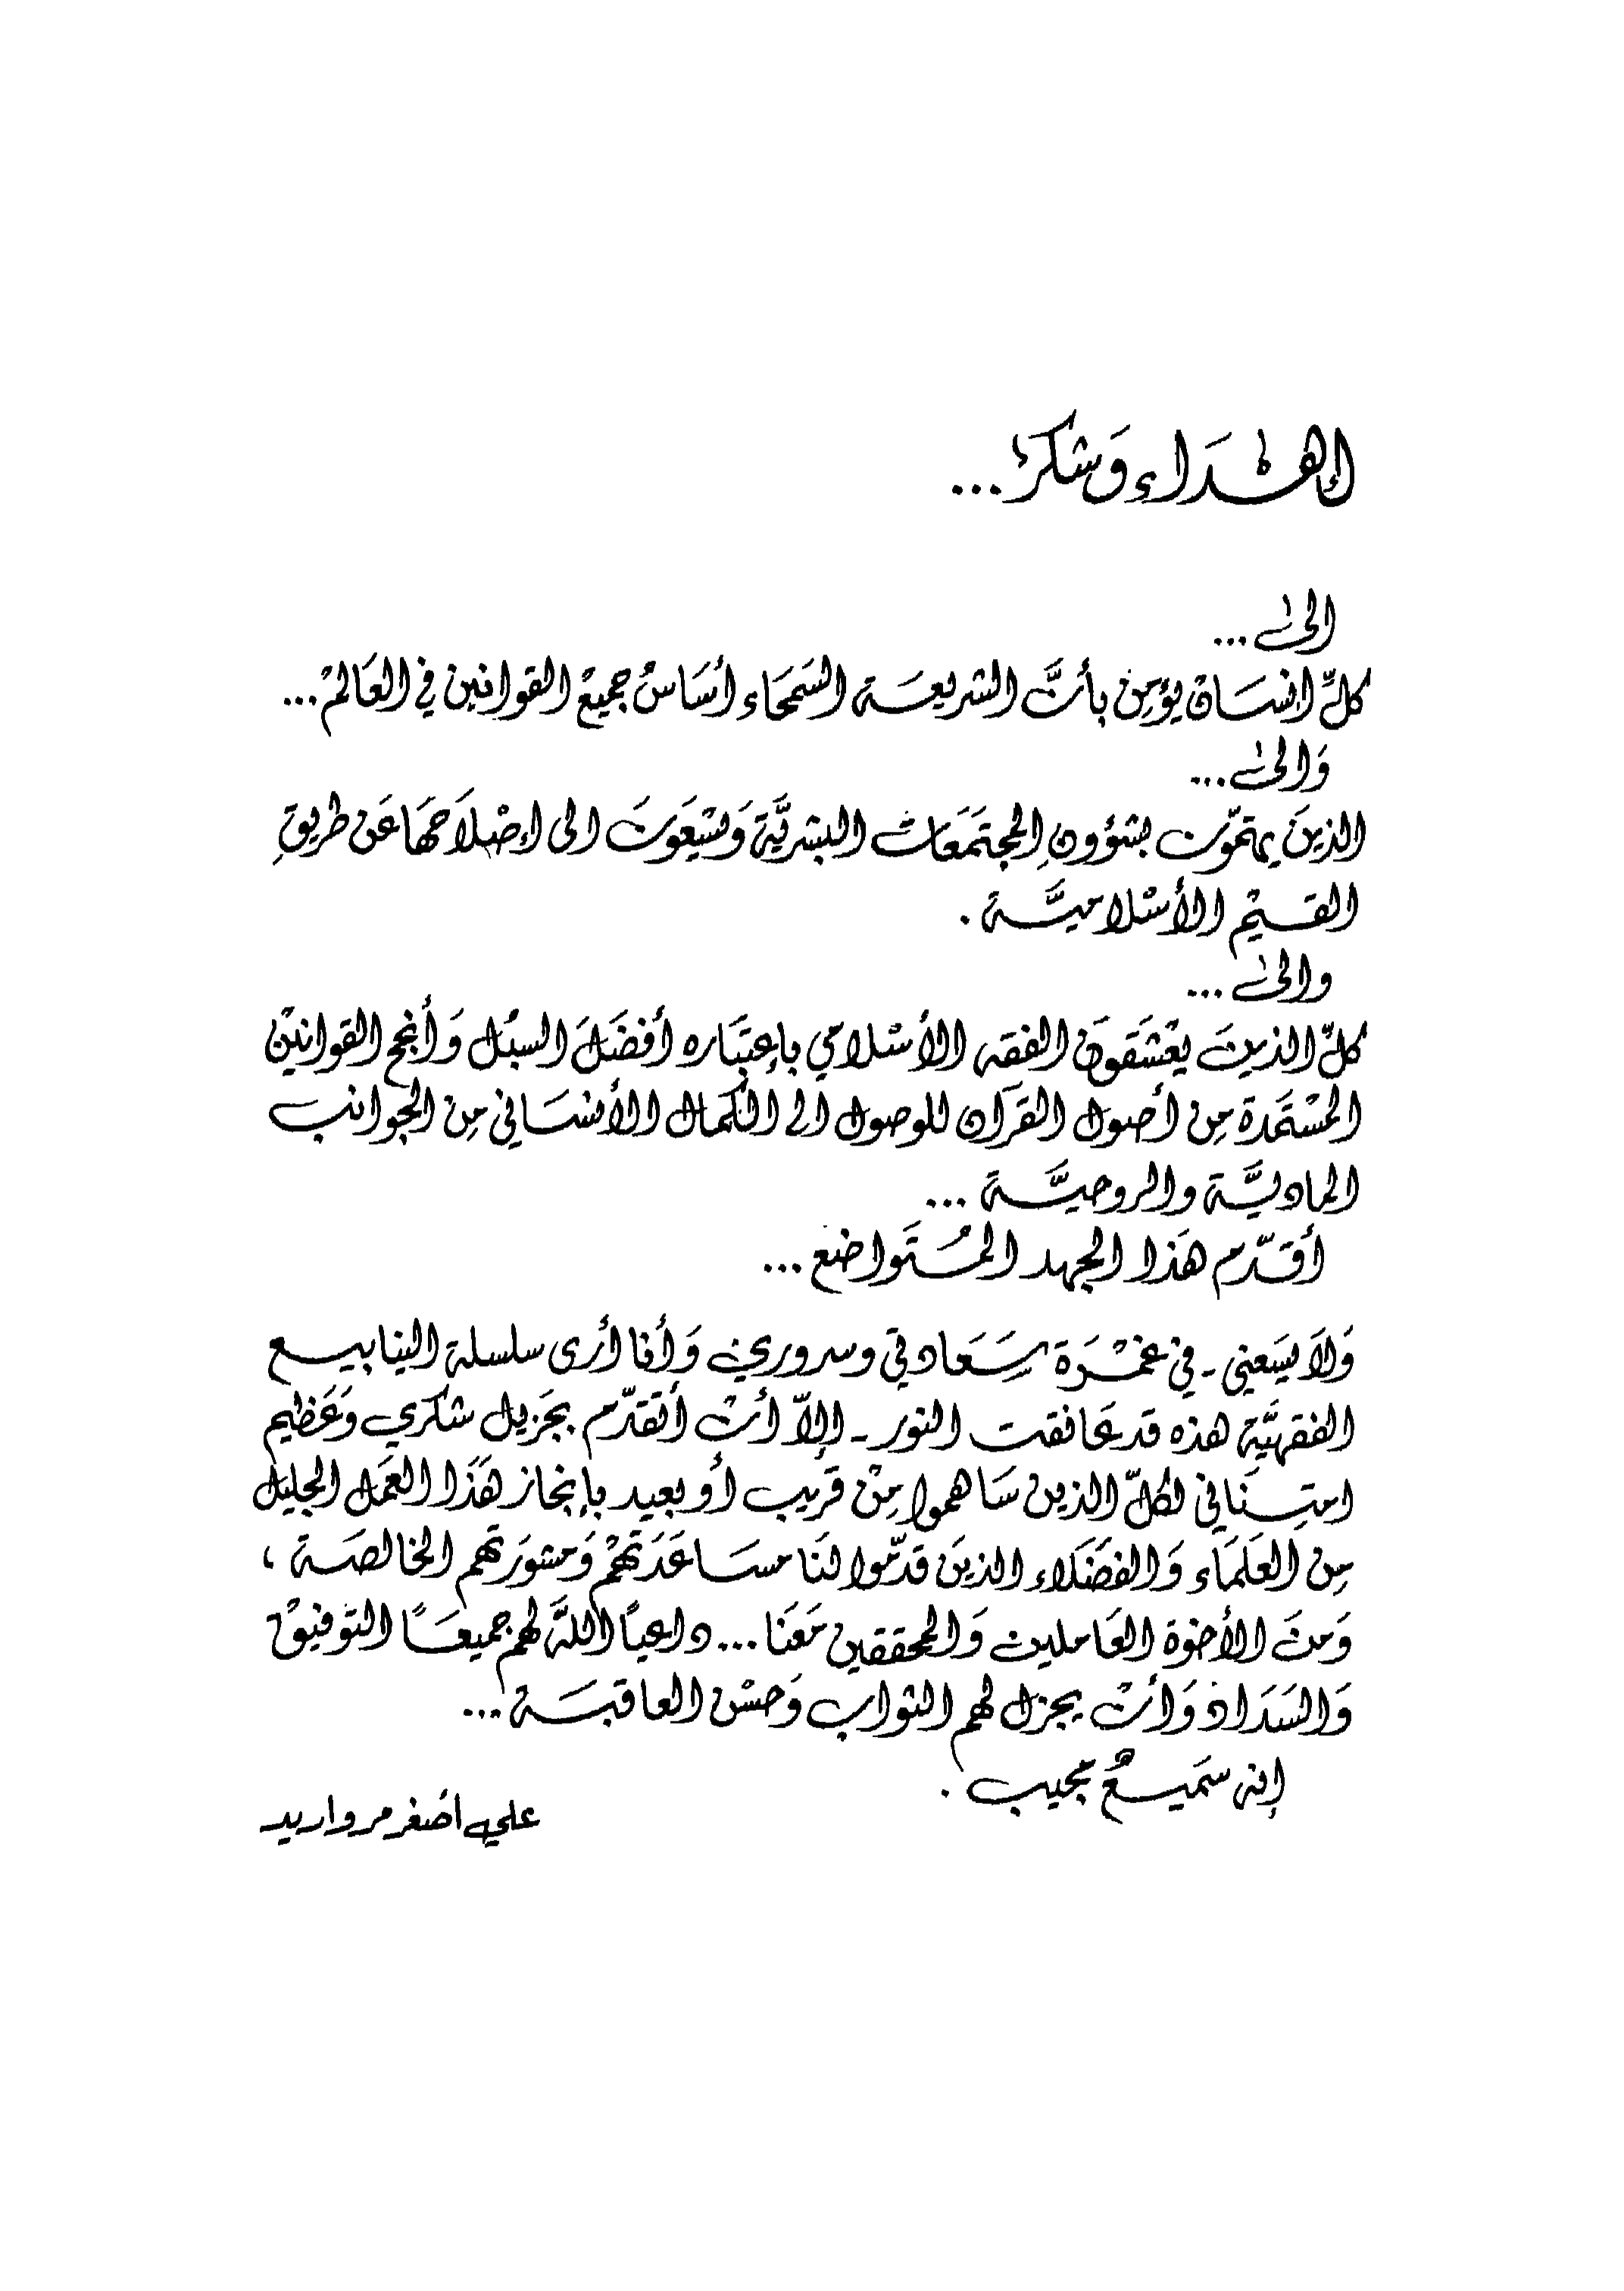 إهداء وَشكر...
الى...
كلّ انسَان يؤمِن بأنَّ الشريعَة السَمحَاء أسَاسُ جميع القوانين في العَالم...
وَالى...
الذينَ يهتمّون بشؤونِ المجتَمَعَات البشريَّة وَيسْعَونَ الى إصْلاَحهَا عَن طريقِ
القيم الأسْلاميَّة .
والى...
كلّ الذينَ يعْشَقونَ الفقه الأسْلامي بإعتبَاره أفضَلَ السبُل وَأنجح القوانين
المسْتمَدة مِن أصول القرآن للوصول الى الكمال الأنسَاني مِن الجوانب
الماديَّة والروحيَّة ...
أقدّم هَذا الجهد المُتَواضع ...
وَلاَ يسَعني - في غمْرَة سَعَادتي وسروري وَأنا أرى سلسلة الينابيع
الفقهيَّة هذه قد عَانقت النور - إلاّ أنْ أتقدّم بجَزيل شكري وَعَظيم
امتِنَاني لكلّ الذين سَاهموا مِنْ قريب أو بعيد بإنجاز هَذَا العمَل الجليل
مِن العلَمَاء وَالفضَلاء الذينَ قدّموا لنَا مسَاعَدَتهُمْ وَمشورَتهم الخالصَة ،
وَمنَ الأخوة العَاملين وَالمحققين مَعَنا ... داعياً اللَّه لهم جميعَاً التوفيقْ
وَالسَدَاد وَأنْ يجزل لهم الثواب وَحسْن العاقبَة ...
إنه سَميعٌ مجيب .
علي اصَغر مرواريد